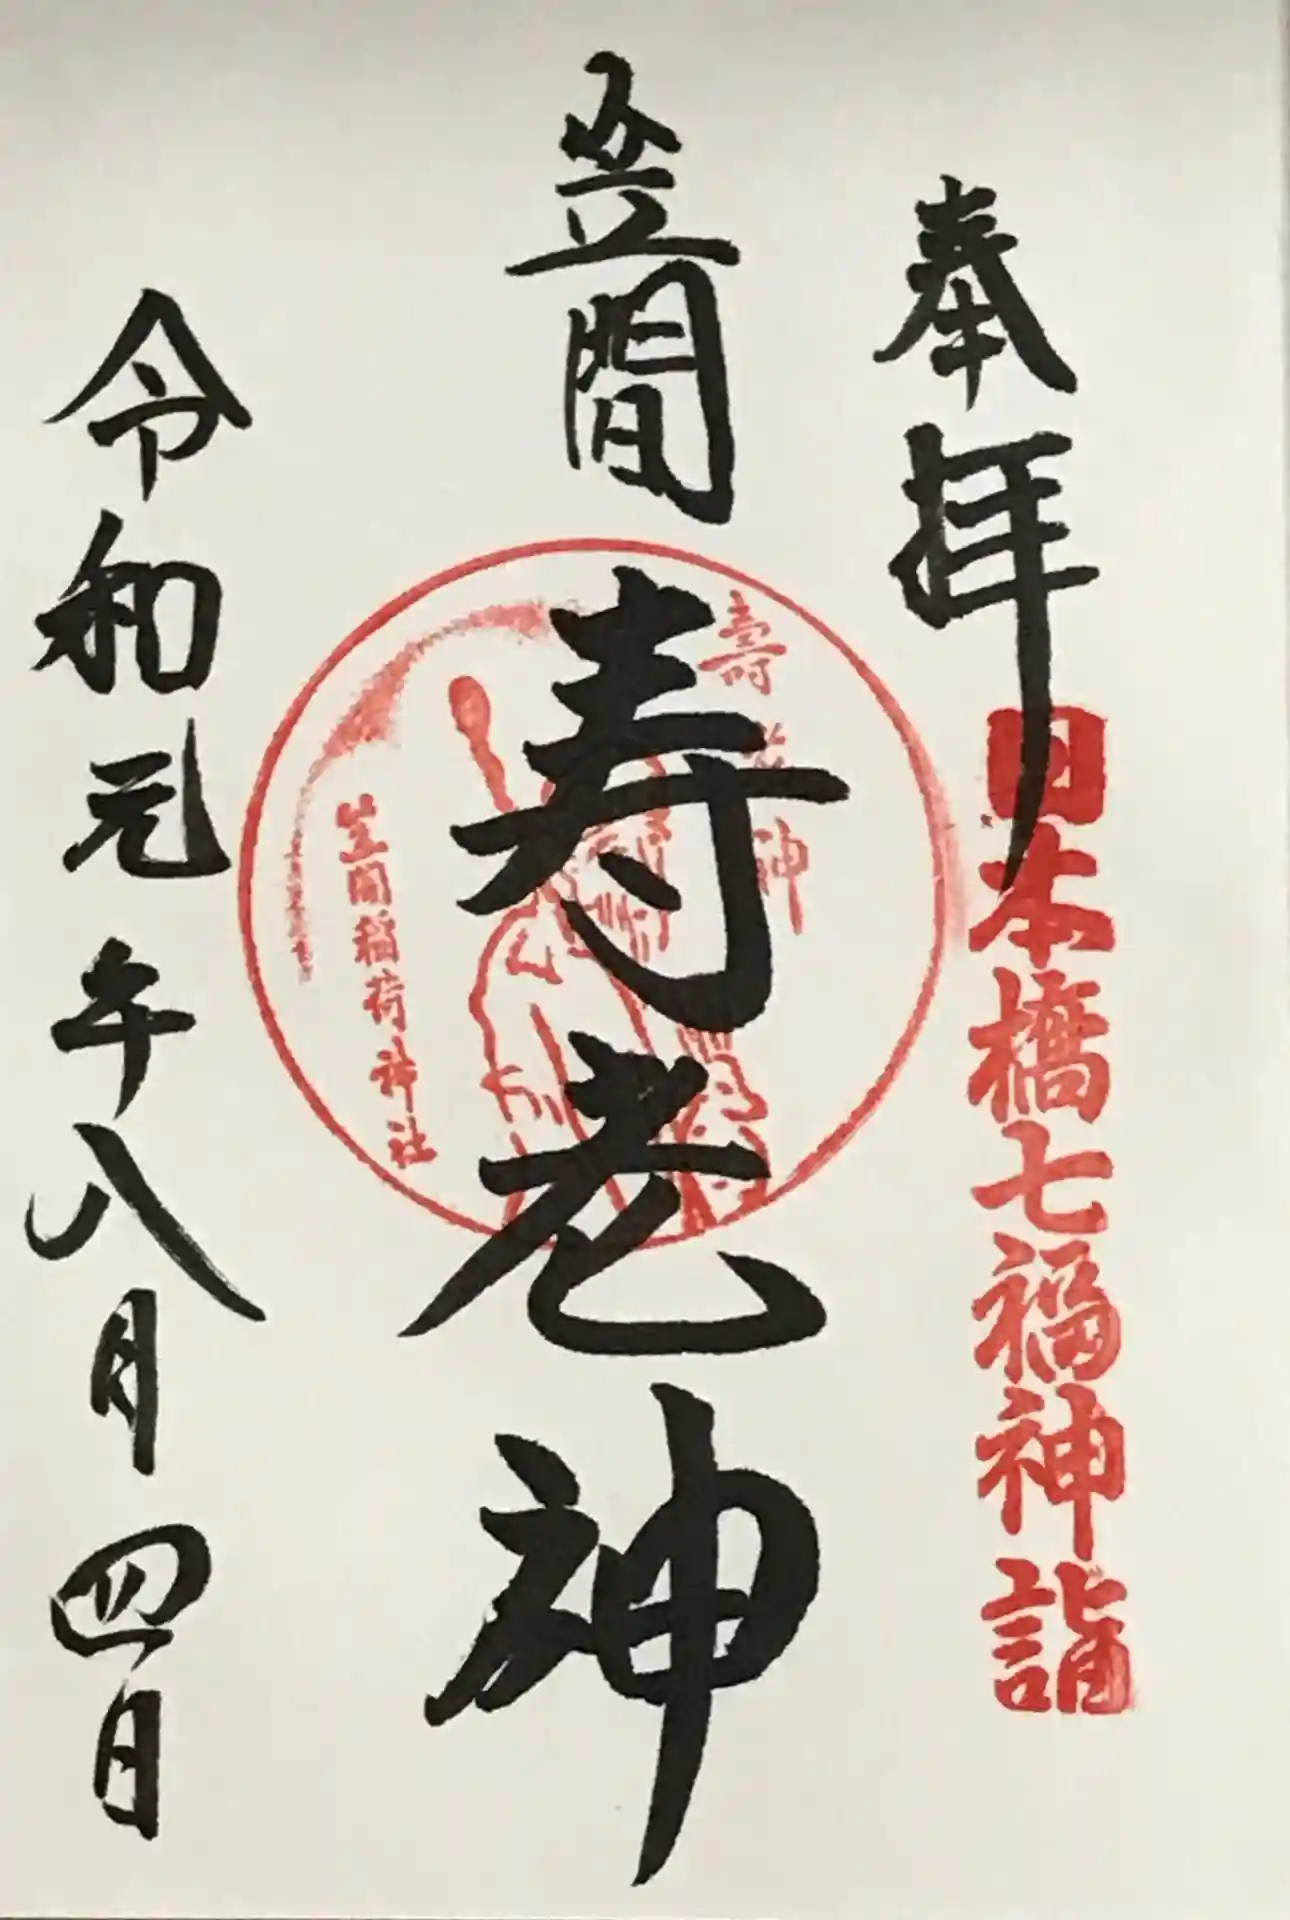 奉拝
日本橋七福神詣
笠間
寿老神
壽老神
笠間稲荷神社
令和元年八月四日